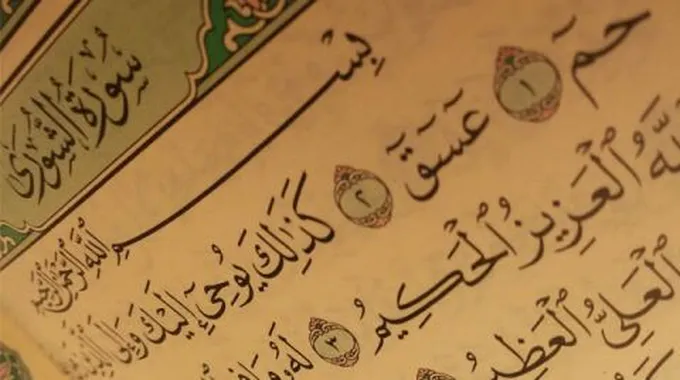 سُورَةُ الشُّورَىٰ
بِسْمِ اللَّهِ الرَّحْمَٰنِ الرَّحِيمِ
حمٓ ١ عٓسٓقٓ ٢ كَذَٰلِكَ يُوحِيٓ إِلَيْكَ وَإِلَى
ٱللَّهُ ٱلْعَزِيزُ ٱلْحَكِيمُ ٣ لَهُۥ مَا
ٱلْعَلِيُّ ٱلْعَظِيمُ